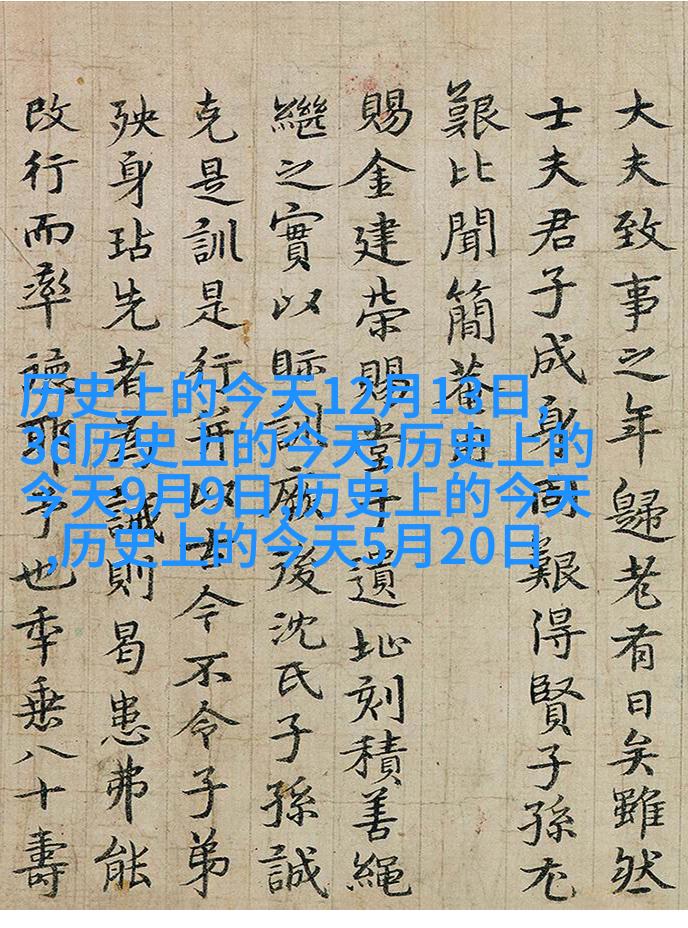 大夫致事之年歸老有日矣雖然
士夫君子成身尚艱得賢子孫尤
艱比聞簡菴
賜金建榮賜堂于遺址刻積善繩
繼之實以貽訓厥後沈氏子孫誠
克是訓是行并以古今不令子弟
殃身玷先者為誡則曷患弗能
改行而率德耶予也年垂八十壽
历史上的今天12月13日,
3d历史上的今天,历史上的
今天9月9日,历史上的今天
,历史上的今天5月20日